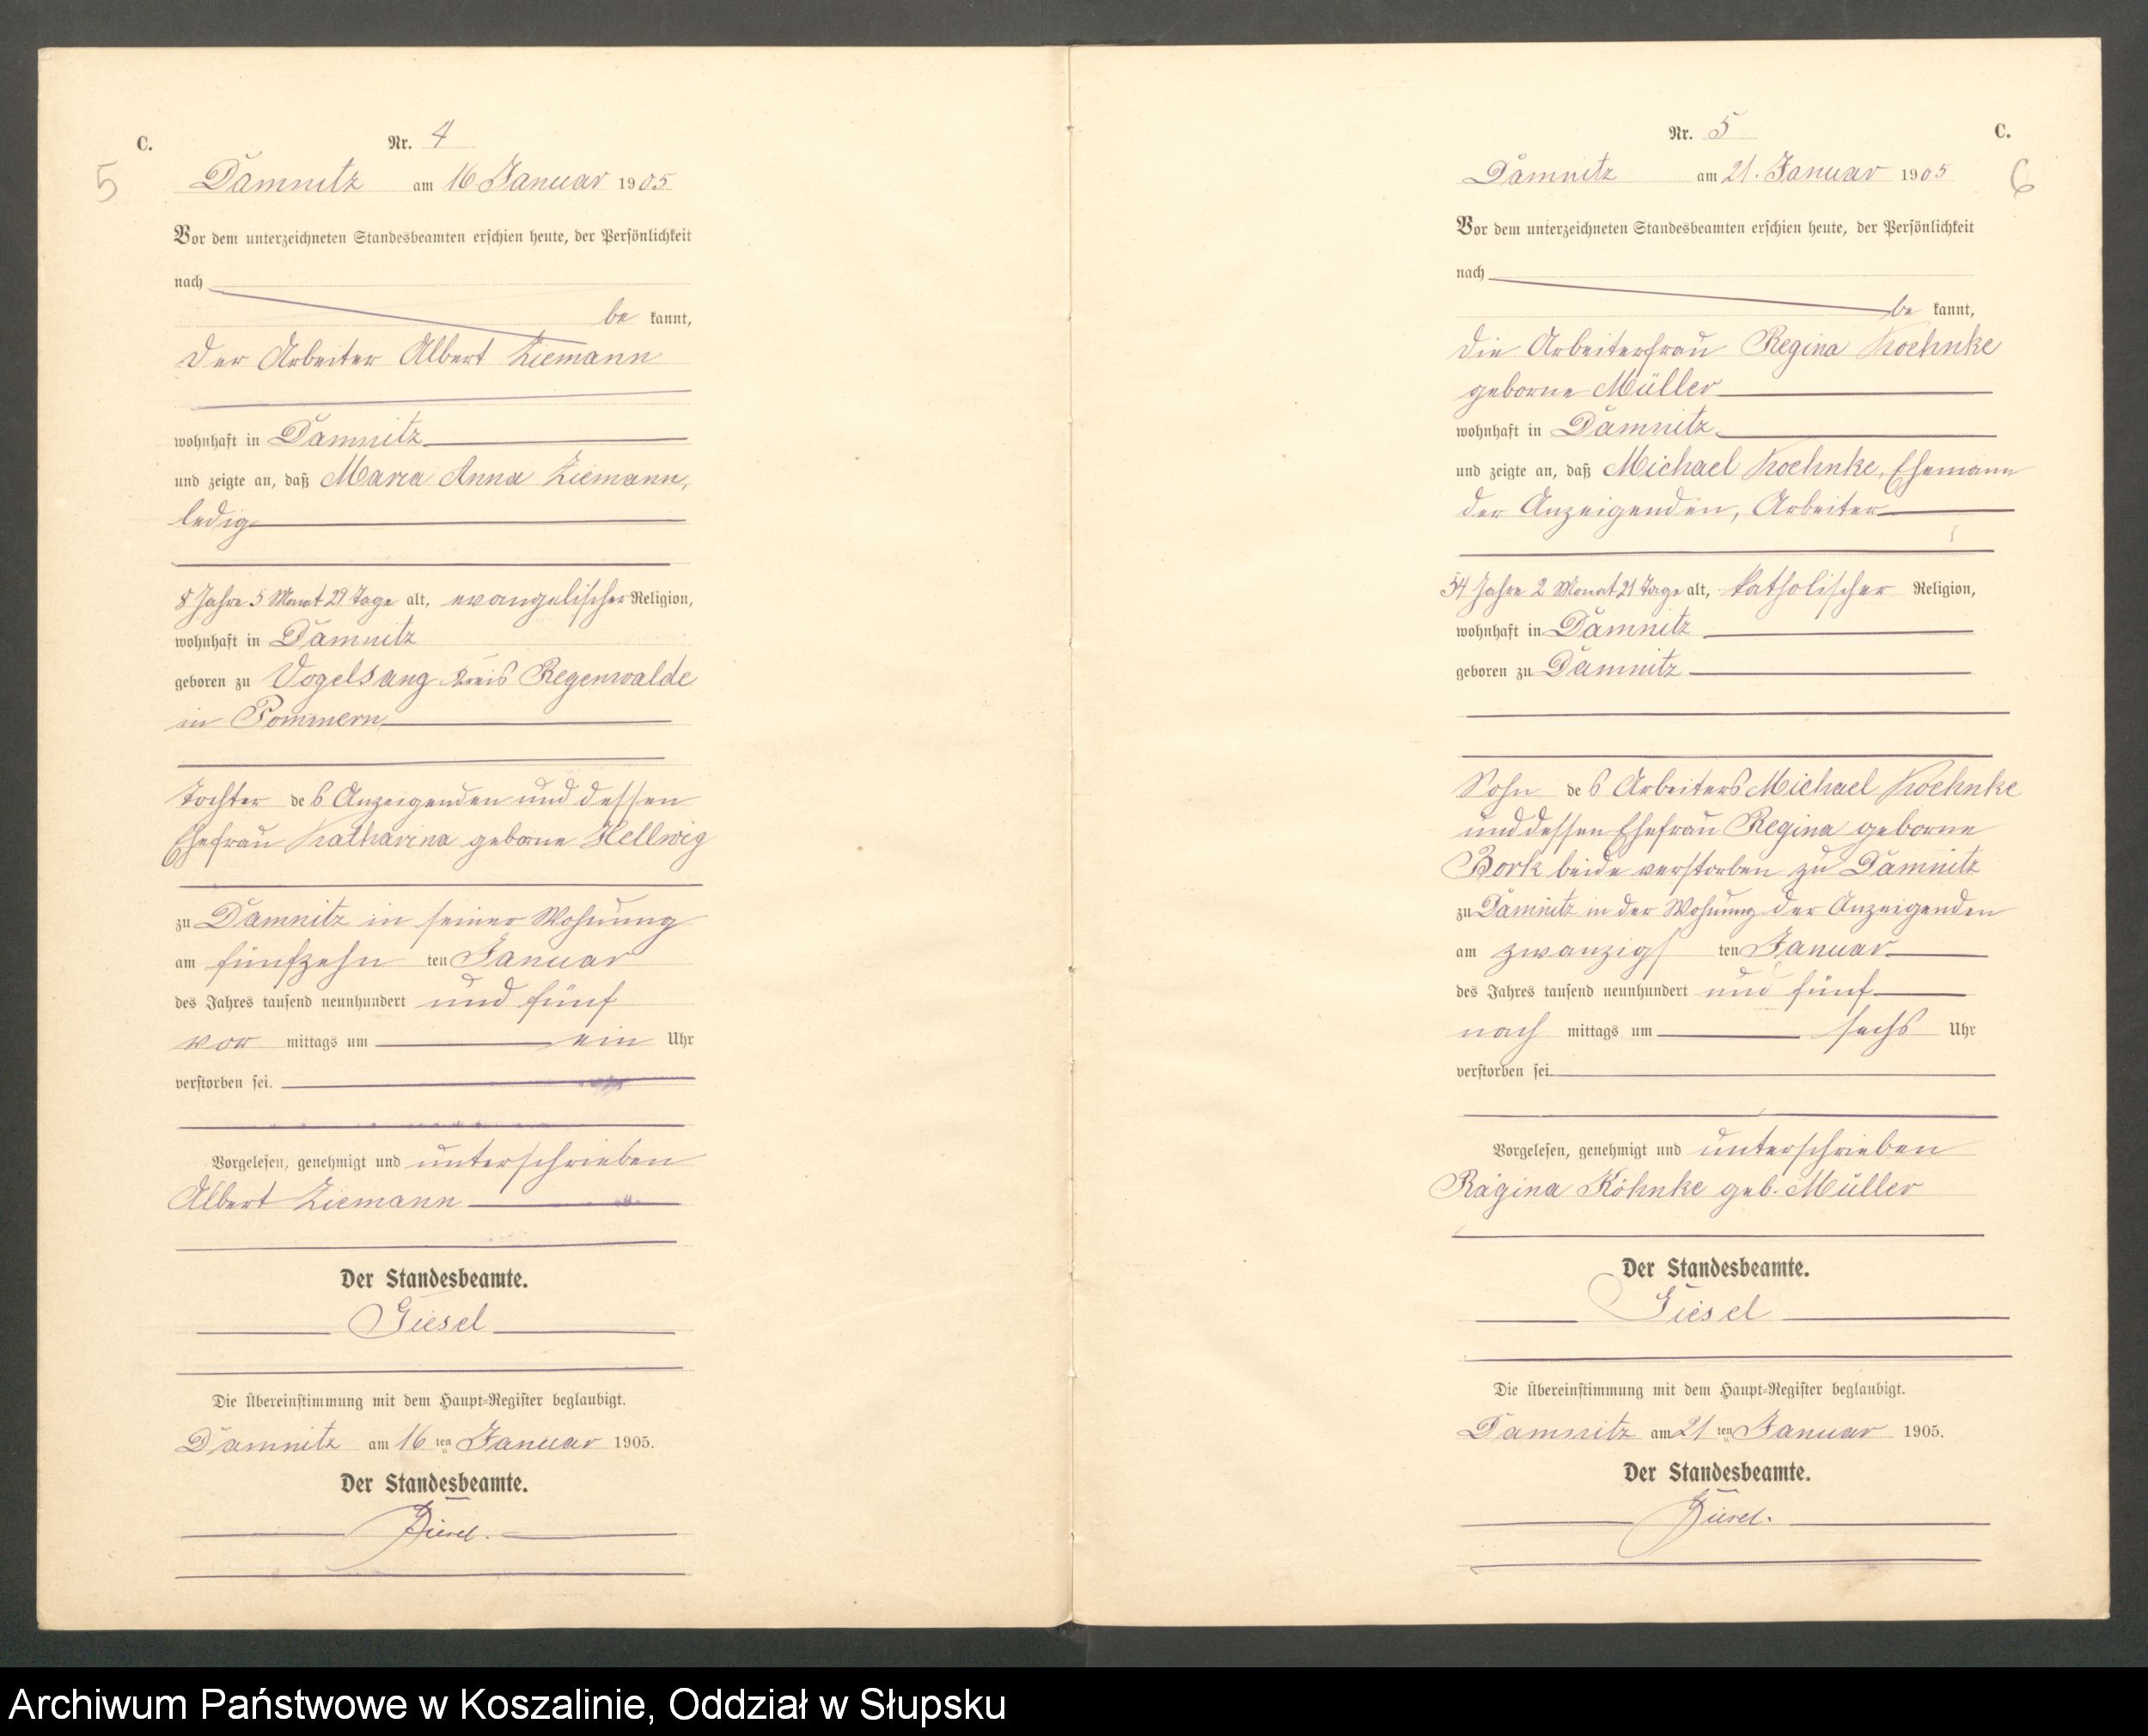 C.
Nr. 4
5
Damnitz am 16. Januar 1905
Vor dem unterzeichneten Standesbeamten erschien heute, der Persönlichkeit
nach
be kannt,
der Arbeiter Albert Ziemann
wohnhaft in Damnitz
und zeigte an, daß Maria Anna Ziemann,
ledig
8 Jahre 5 Monat 29 Tage alt, evangelischer Religion,
wohnhaft in Damnitz
geboren zu Vogelsang Kreis Regenwalde
in Pommern
Tochter des Anzeigenden und dessen
Ehefrau Katharina geborne Hellwig
zu Damnitz in seiner Wohnung
am fünfzehn ten Januar
des Jahres tausend neunhundert und fünf
vor mittags um ein Uhr
verstorben sei.
Vorgelesen, genehmigt und unterschrieben
Albert Ziemann
Der Standesbeamte.
Giesel
Die Übereinstimmung mit dem Haupt-Register beglaubigt.
Damnitz am 16 ten Januar 1905.
Der Standesbeamte.
Giesel.
Nr. 5
C.
6
Damnitz am 21. Januar 1905
Vor dem unterzeichneten Standesbeamten erschien heute, der Persönlichkeit
nach
be kannt,
die Arbeiterfrau Regina Koehnke
geborne Müller
wohnhaft in Damnitz
und zeigte an, daß Michael Koehnke, Ehemann
der Anzeigenden, Arbeiter
54 Jahre 2 Monat 21 Tage alt, katholischer Religion,
wohnhaft in Damnitz
geboren zu Damnitz
Sohn des Arbeiters Michael Koehnke
und dessen Ehefrau Regina geborne
Bork beide verstorben zu Damnitz
zu Damnitz in der Wohnung der Anzeigenden
am zwanzigs ten Januar
des Jahres tausend neunhundert und fünf
nach mittags um sechs Uhr
verstorben sei.
Vorgelesen, genehmigt und unterschrieben
Rägina Köhnke geb. Müller
Der Standesbeamte.
Giesel
Die Übereinstimmung mit dem Haupt-Register beglaubigt.
Damnitz am 21 ten Januar 1905.
Der Standesbeamte.
Giesel.
Archiwum Państwowe w Koszalinie, Oddział w Słupsku